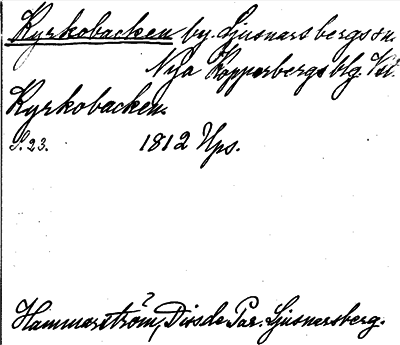 Kyrkobacken by. Ljusnarsbergs sn.
Nya Kopparbergs blg. Vstl.
Kyrkobacken.
S. 23. 1812 Ups.
Hammarström, Diss de Par. Ljusnarsberg.